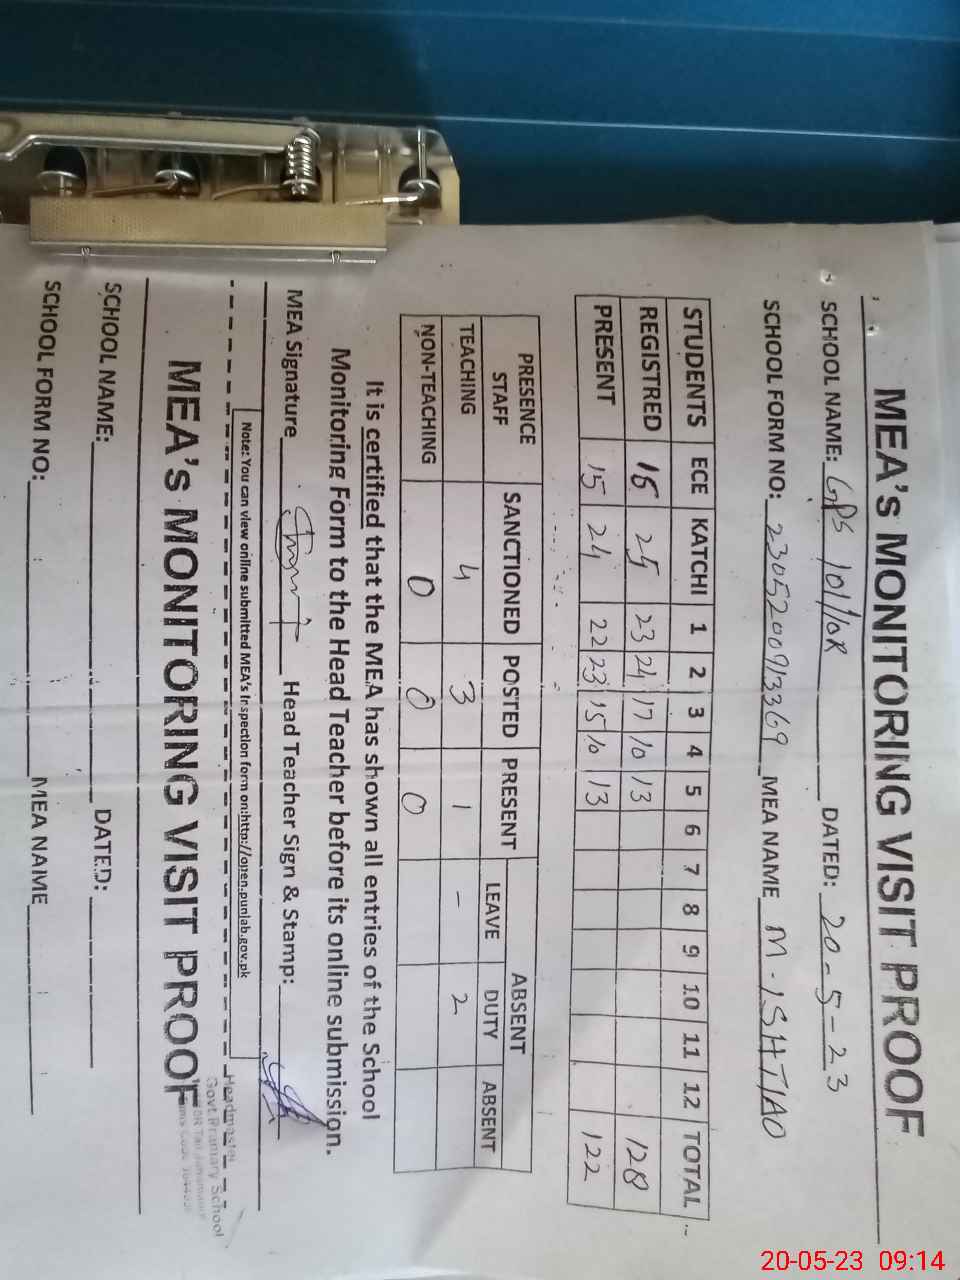 MEA's MONITORING VISIT PROOF
SCHOOL NAME: GPS 101/10R DATED: 20-5-23
SCHOOL FORM NO: 2305200913369 MEA NAME M. ISHTIAQ
STUDENTS ECE KATCHI 1 2 3 4 5 6 7 8 9 10 11 12 TOTAL
REGISTRED 16 25 23 24 17 10 13 128
PRESENT 15 24 22 23 15 10 13 122
PRESENCE STAFF SANCTIONED POSTED PRESENT ABSENT
LEAVE DUTY ABSENT
TEACHING 4 3 1 - 2
NON-TEACHING 0 0 0
It is certified that the MEA has shown all entries of the School
Monitoring Form to the Head Teacher before its online submission.
MEA Signature Head Teacher Sign & Stamp:
Note: You can view online submitted MEA's Inspection form on:http://open.punjab.gov.pk
Headmaster
Govt Primary School
MEA's MONITORING VISIT PROOF
SCHOOL NAME: DATED:
SCHOOL FORM NO: MEA NAME
20-05-23 09:14